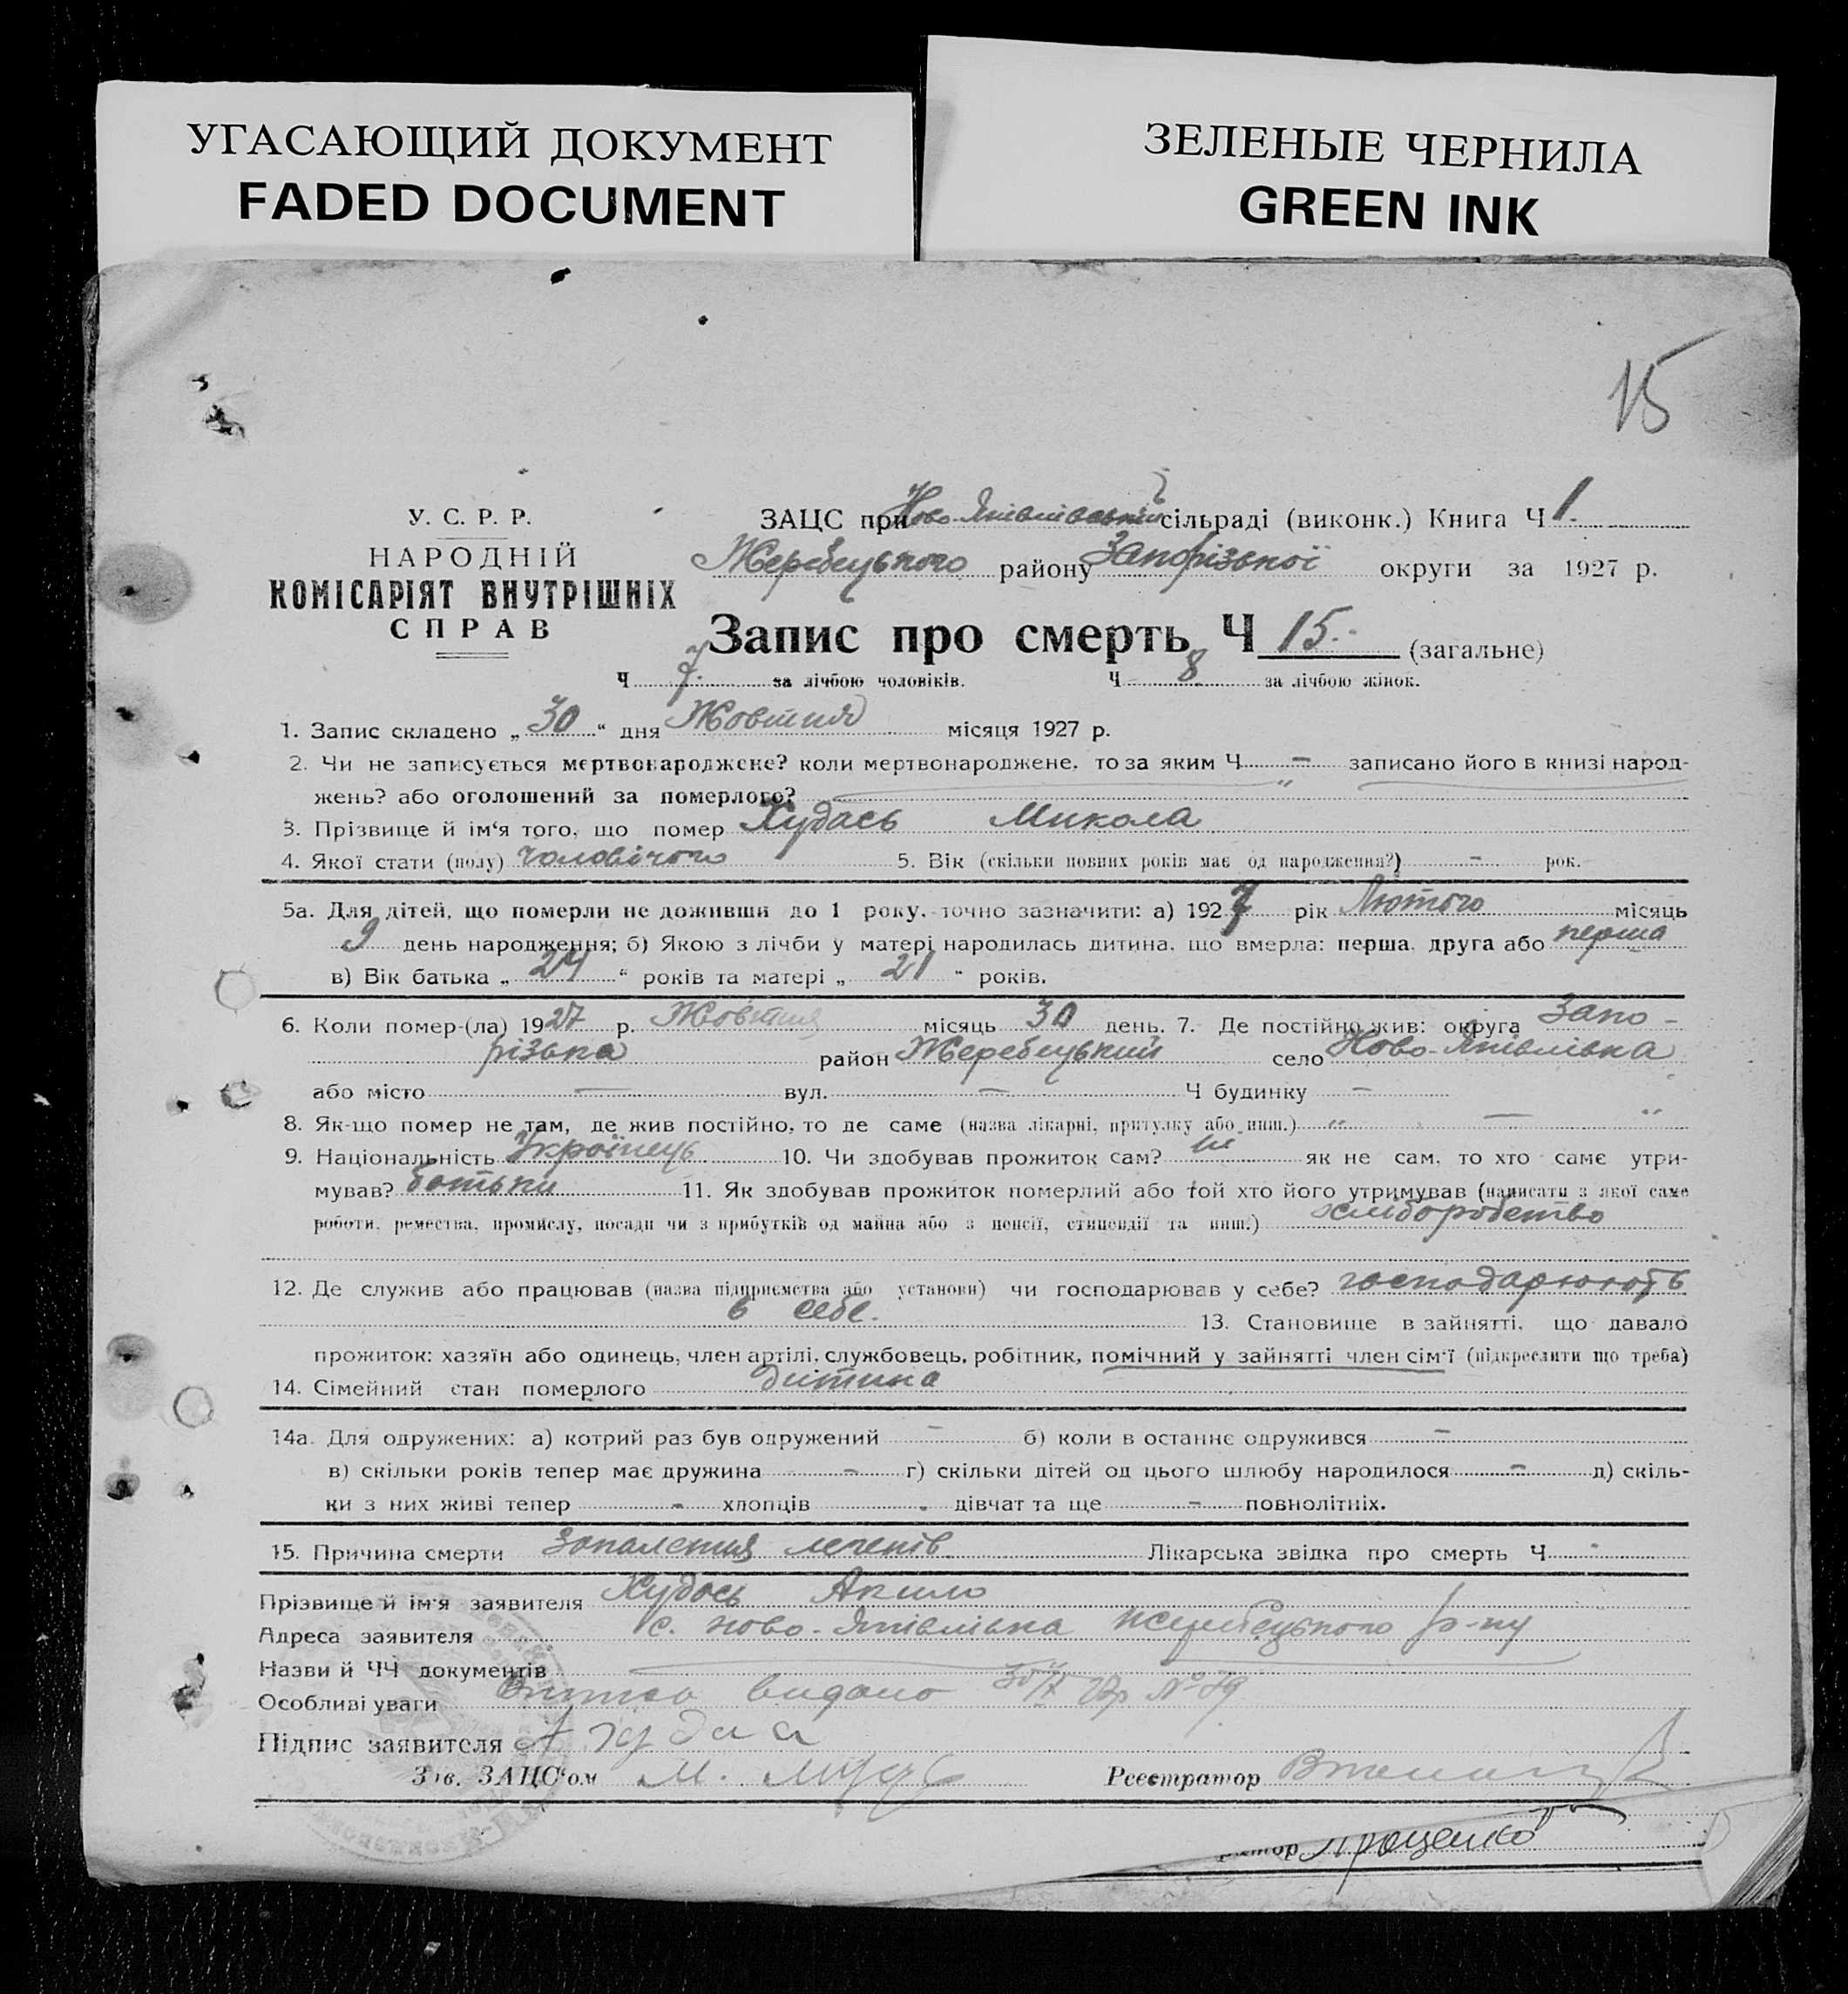 УГАСАЮЩИЙ ДОКУМЕНТ
FADED DOCUMENT
ЗЕЛЕНЫЕ ЧЕРНИЛА
GREEN INK
15
У. С. Р. Р.
НАРОДНІЙ
КОМІСАРІЯТ ВНУТРІШНІХ
СПРАВ
ЗАЦС при Ново- сільраді (виконк.) Книга Ч 1.
Жеребецького району Запорізької округи за 1927 р.
Запис про смерть Ч 15. (загальне)
Ч 7. за лічбою чоловіків. Ч 8 за лічбою жінок.
1. Запис складено „ 30 “ дня Жовтня місяця 1927 р.
2. Чи не записується мертвонароджене? коли мертвонароджене, то за яким Ч — записано його в книзі народ-
жень? або оголошений за померлого? "
3. Прізвище й ім‘я того, що помер Худась Микола
4. Якої стати (полу) чоловічого 5. Вік (скільки повних років має од народження?) - рок.
5а. Для дітей, що померли не доживши до 1 року, точно зазначити: а) 1927 рік Лютого місяць
9 день народження; б) Якою з лічби у матері народилась дитина, що вмерла: перша, друга або перша
в) Вік батька „ 24 “ років та матері „ 21 “ років.
6. Коли помер-(ла) 1927 р. Жовтня місяць 30 день. 7. Де постійно жив: округа Запо-
різька район Жеребецький село Ново-
або місто — вул. — Ч будинку —
8. Як-що помер не там, де жив постійно, то де саме (назва лікарні, притулку або инш.) " — "
9. Національність Українець 10. Чи здобував прожиток сам? ні як не сам, то хто саме утри-
мував? батьки 11. Як здобував прожиток померлий або той хто його утримував (написати з якої саме
роботи, ремества, промислу, посади чи з прибутків од майна або з пенсії, стипендії та инш.) хліборобство
12. Де служив або працював (назва підприємства або установи) чи господарював у себе? господарюють
в себе. 13. Становище в зайнятті, що давало
прожиток: хазяїн або одинець, член артілі, службовець, робітник, помічний у зайнятті член сім‘ї (підкреслити що треба)
14. Сімейний стан померлого дитина
14а. Для одружених: а) котрий раз був одружений - б) коли в останнє одружився -
в) скільки років тепер має дружина - г) скільки дітей од цього шлюбу народилося - д) скіль-
ки з них живі тепер - хлопців - дівчат та ще - повнолітніх.
15. Причина смерти Запалення легенів Лікарська звідка про смерть Ч -
Прізвище й ім‘я заявителя Худась Акило
Адреса заявителя с. Ново- Жеребецького р-ну
Назви й ЧЧ документів
Особливі уваги видано 30/X №
Підпис заявителя
Зав. ЗАЦС‘ом М.
Реєстратор
Проценко